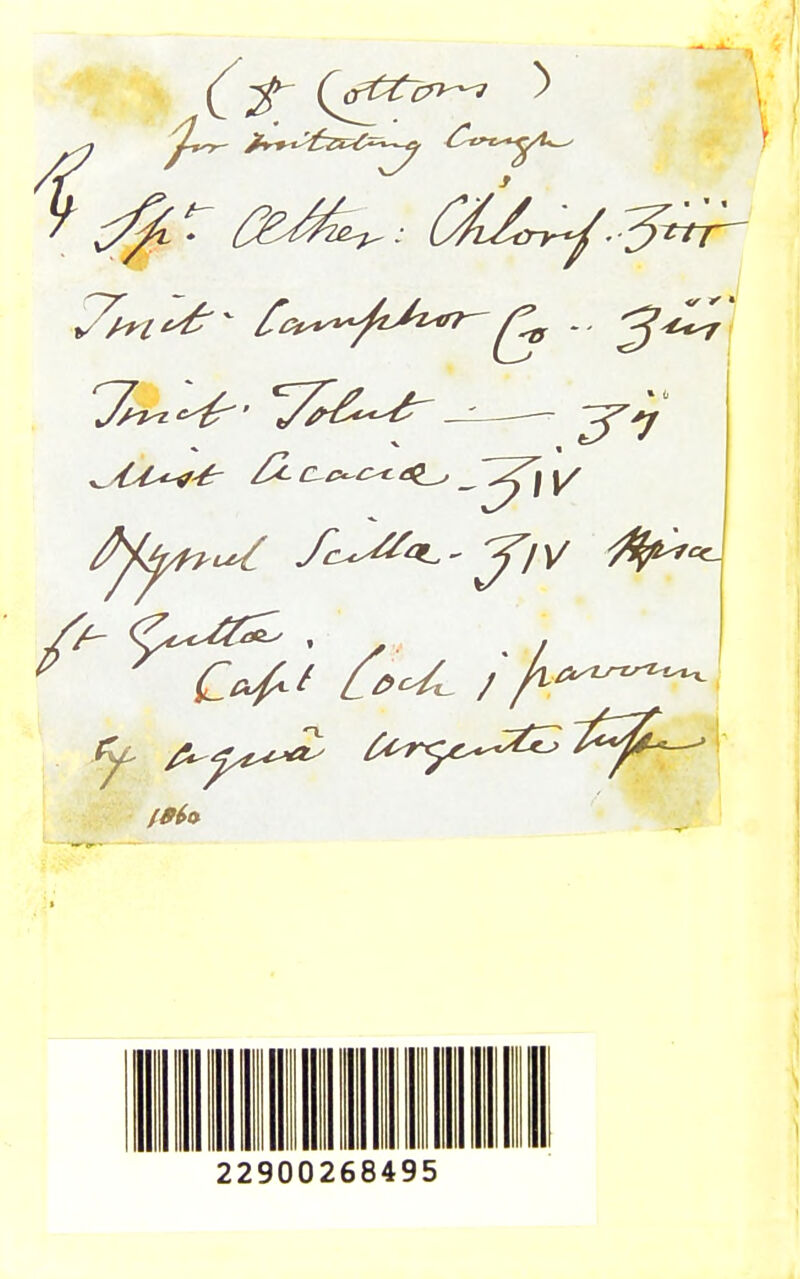 (Dr Cottons)
for irritating Cough
℞
Spt. Æther: Chlorif. ʒiii
Tinct. Camphor Co .. ʒiii
Tinct. Tolut — ʒij
Mist Acaciæ - ʒiv
Oxymel Scillæ - ʒiv Misce
ft Guttæ.
Capt Coch j parvum
ex aquâ urgente tusse
1860
22900268495